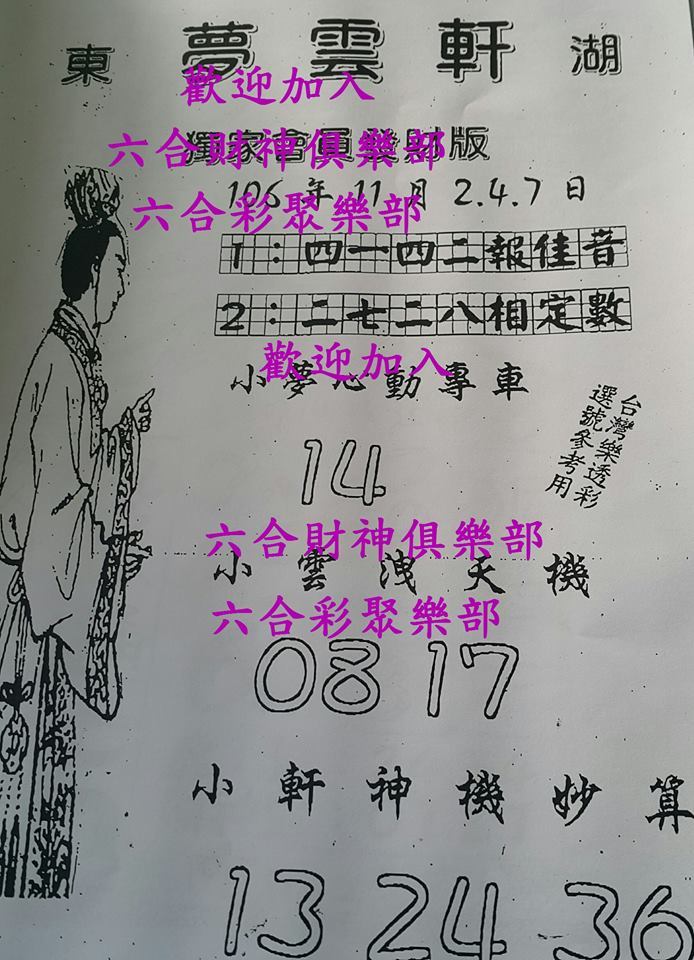 東 夢雲軒 湖
歡迎加入
六合財神俱樂部
版
六合彩聚樂部
106 年 11 月 2.4.7 日
1：四一四二報佳音
2：二七二八相定數
歡迎加入
小夢心動專車
台灣樂透彩
選號參考用
14
六合財神俱樂部
小雲洩天機
六合彩聚樂部
08 17
小軒神機妙算
13 24 36